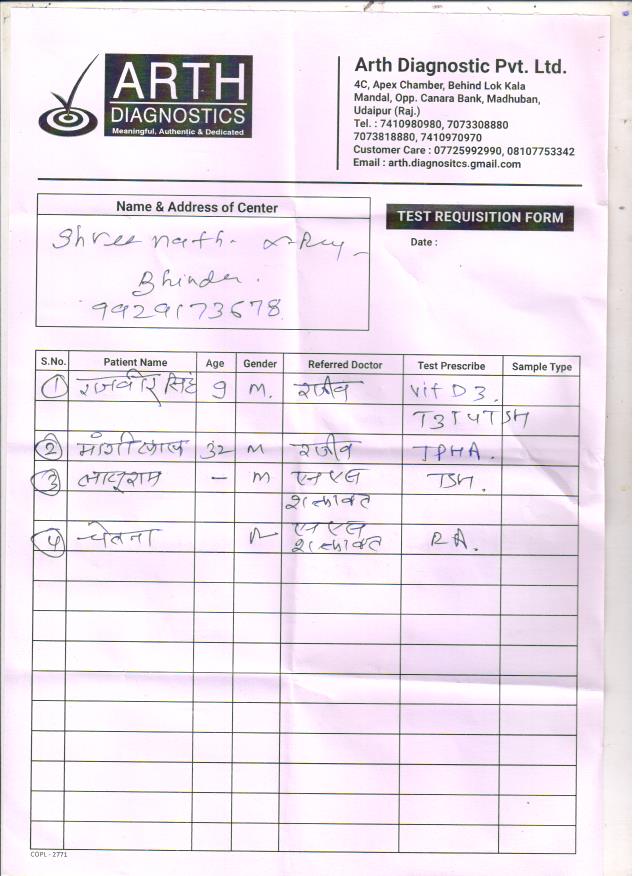 ARTH
DIAGNOSTICS
Meaningful, Authentic & Dedicated
Arth Diagnostic Pvt. Ltd.
4C, Apex Chamber, Behind Lok Kala
Mandal, Opp. Canara Bank, Madhuban,
Udaipur (Raj.)
Tel. : 7410980980, 7073308880
7073818880, 7410970970
Customer Care : 07725992990, 08107753342
Email : arth.diagnositcs.gmail.com
Name & Address of Center
Shree nath. x-Ray
Bhinder.
9929173678
TEST REQUISITION FORM
Date :
S.No. Patient Name Age Gender Referred Doctor Test Prescribe Sample Type
1 राजवीर सिंह 9 M. राजीव Vit D3.
T3T4TSH
2 मांगीलाल 32 M राजीव TPHA.
3 लालूराम - M एन एल TSH.
शक्तावत
4 चेतना एन एल RA.
शक्तावत
COPL - 2771